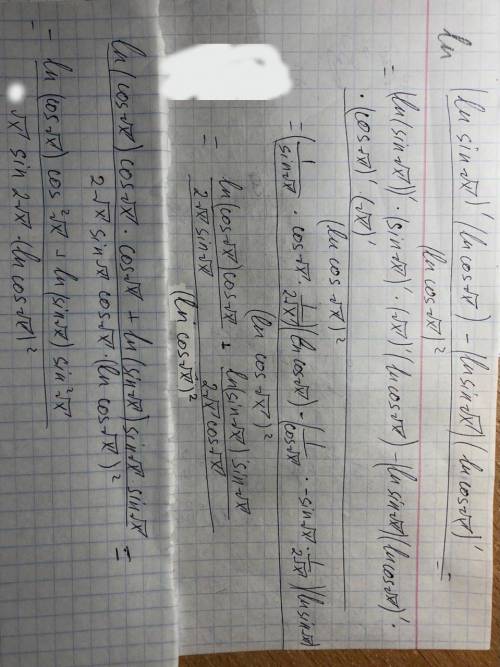 ln
(ln sin√x)' (ln cos√x) - (ln sin√x)(ln cos√x)'
(ln cos√x)²
=
= (ln(sin√x))' · (sin√x)' · (√x)' (ln cos√x) - (ln sin√x)(ln cos√x)' ·
· (cos√x)' · (√x)'
(ln cos√x)²
= (1/sin√x · cos√x · 1/2√x)(ln cos√x) - (1/cos√x · -sin√x · 1/2√x)(ln sin√x)
(ln cos√x)²
=
ln(cos√x) cos√x / 2√x sin√x + ln(sin√x) sin√x / 2√x cos√x
(ln cos√x)²
=
ln(cos√x) cos√x · cos√x + ln(sin√x) sin√x · sin√x
2√x sin√x cos√x · (ln cos√x)²
=
= ln(cos√x) cos²√x + ln(sin√x) sin²√x
√x sin 2√x · (ln cos√x)²